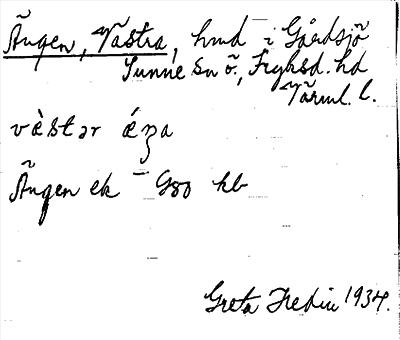 Ängen, Västra, hmd i Gårdsjö
Sunne sn ö., Fryksd. hd
Värml. l.
vὲstər ǽŋa
Ängen ek G80 kb
Greta Hedin 1934.